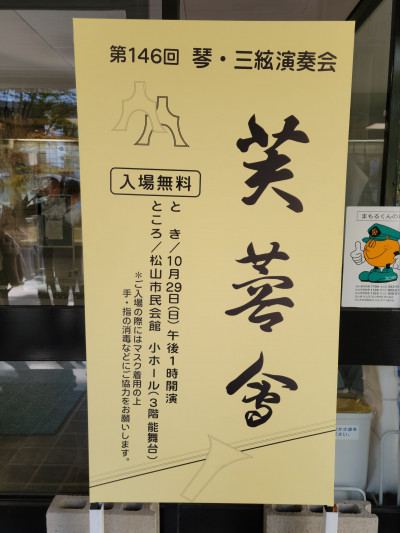 第146回 琴・三絃演奏会
芙蓉會
入場無料
とき/10月29日(日)午後1時開演
ところ/松山市民会館 小ホール(3階 能舞台)
*ご入場の際にはマスク着用の上
手・指の消毒などにご協力をお願いします。
まもるくんの